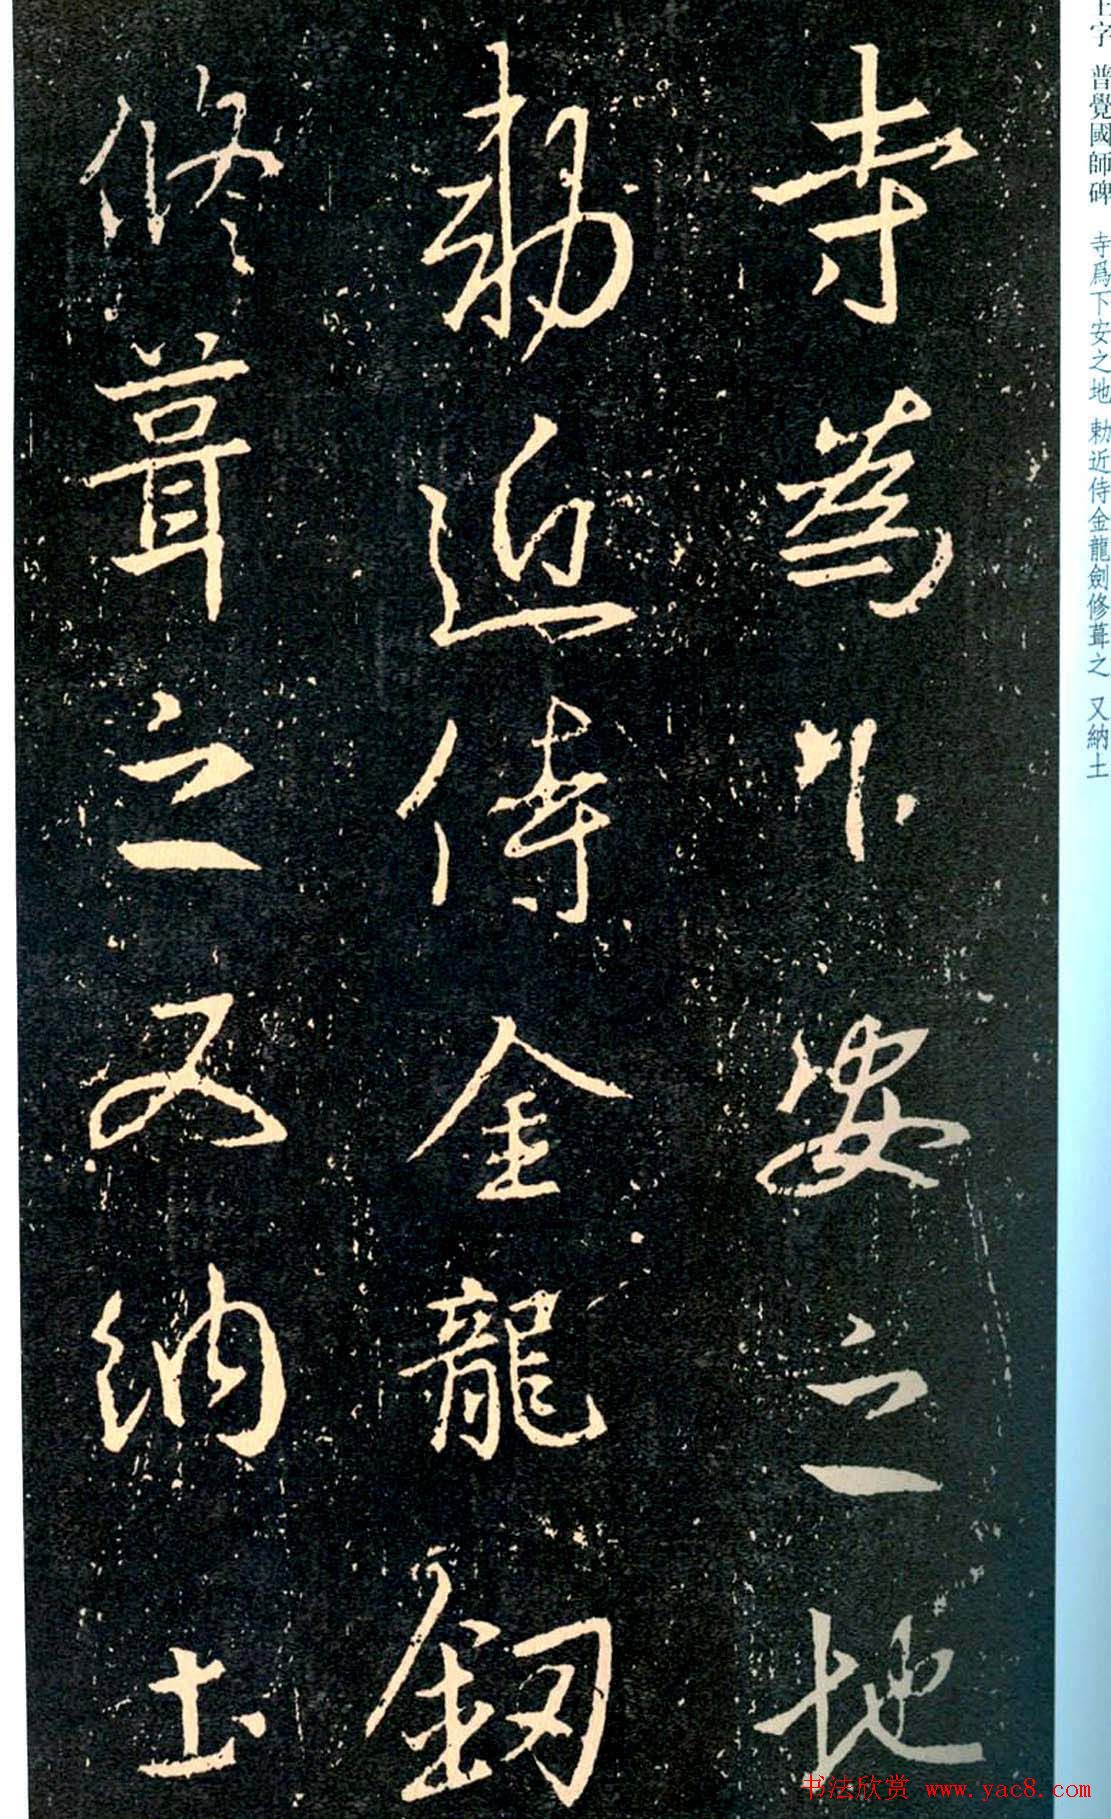 寺為下安之地
勅近侍金龍釼
修葺之又納土
王字 普覺國師碑 寺爲下安之地 勅近侍金龍劍修葺之 又納土
书法欣赏 www.yac8.com